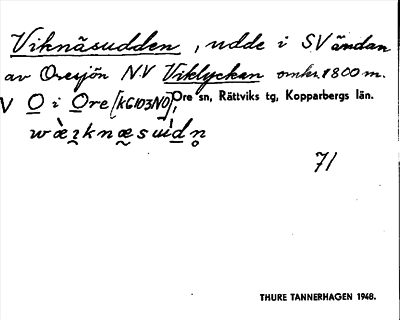 Viknäsudden, udde i SV ändan
av Oresjön NV Viklyckan omkr. 1800 m.
V O i Ore [KG103NO], Ore sn, Rättviks tg, Kopparbergs län.
71
THURE TANNERHAGEN 1948.